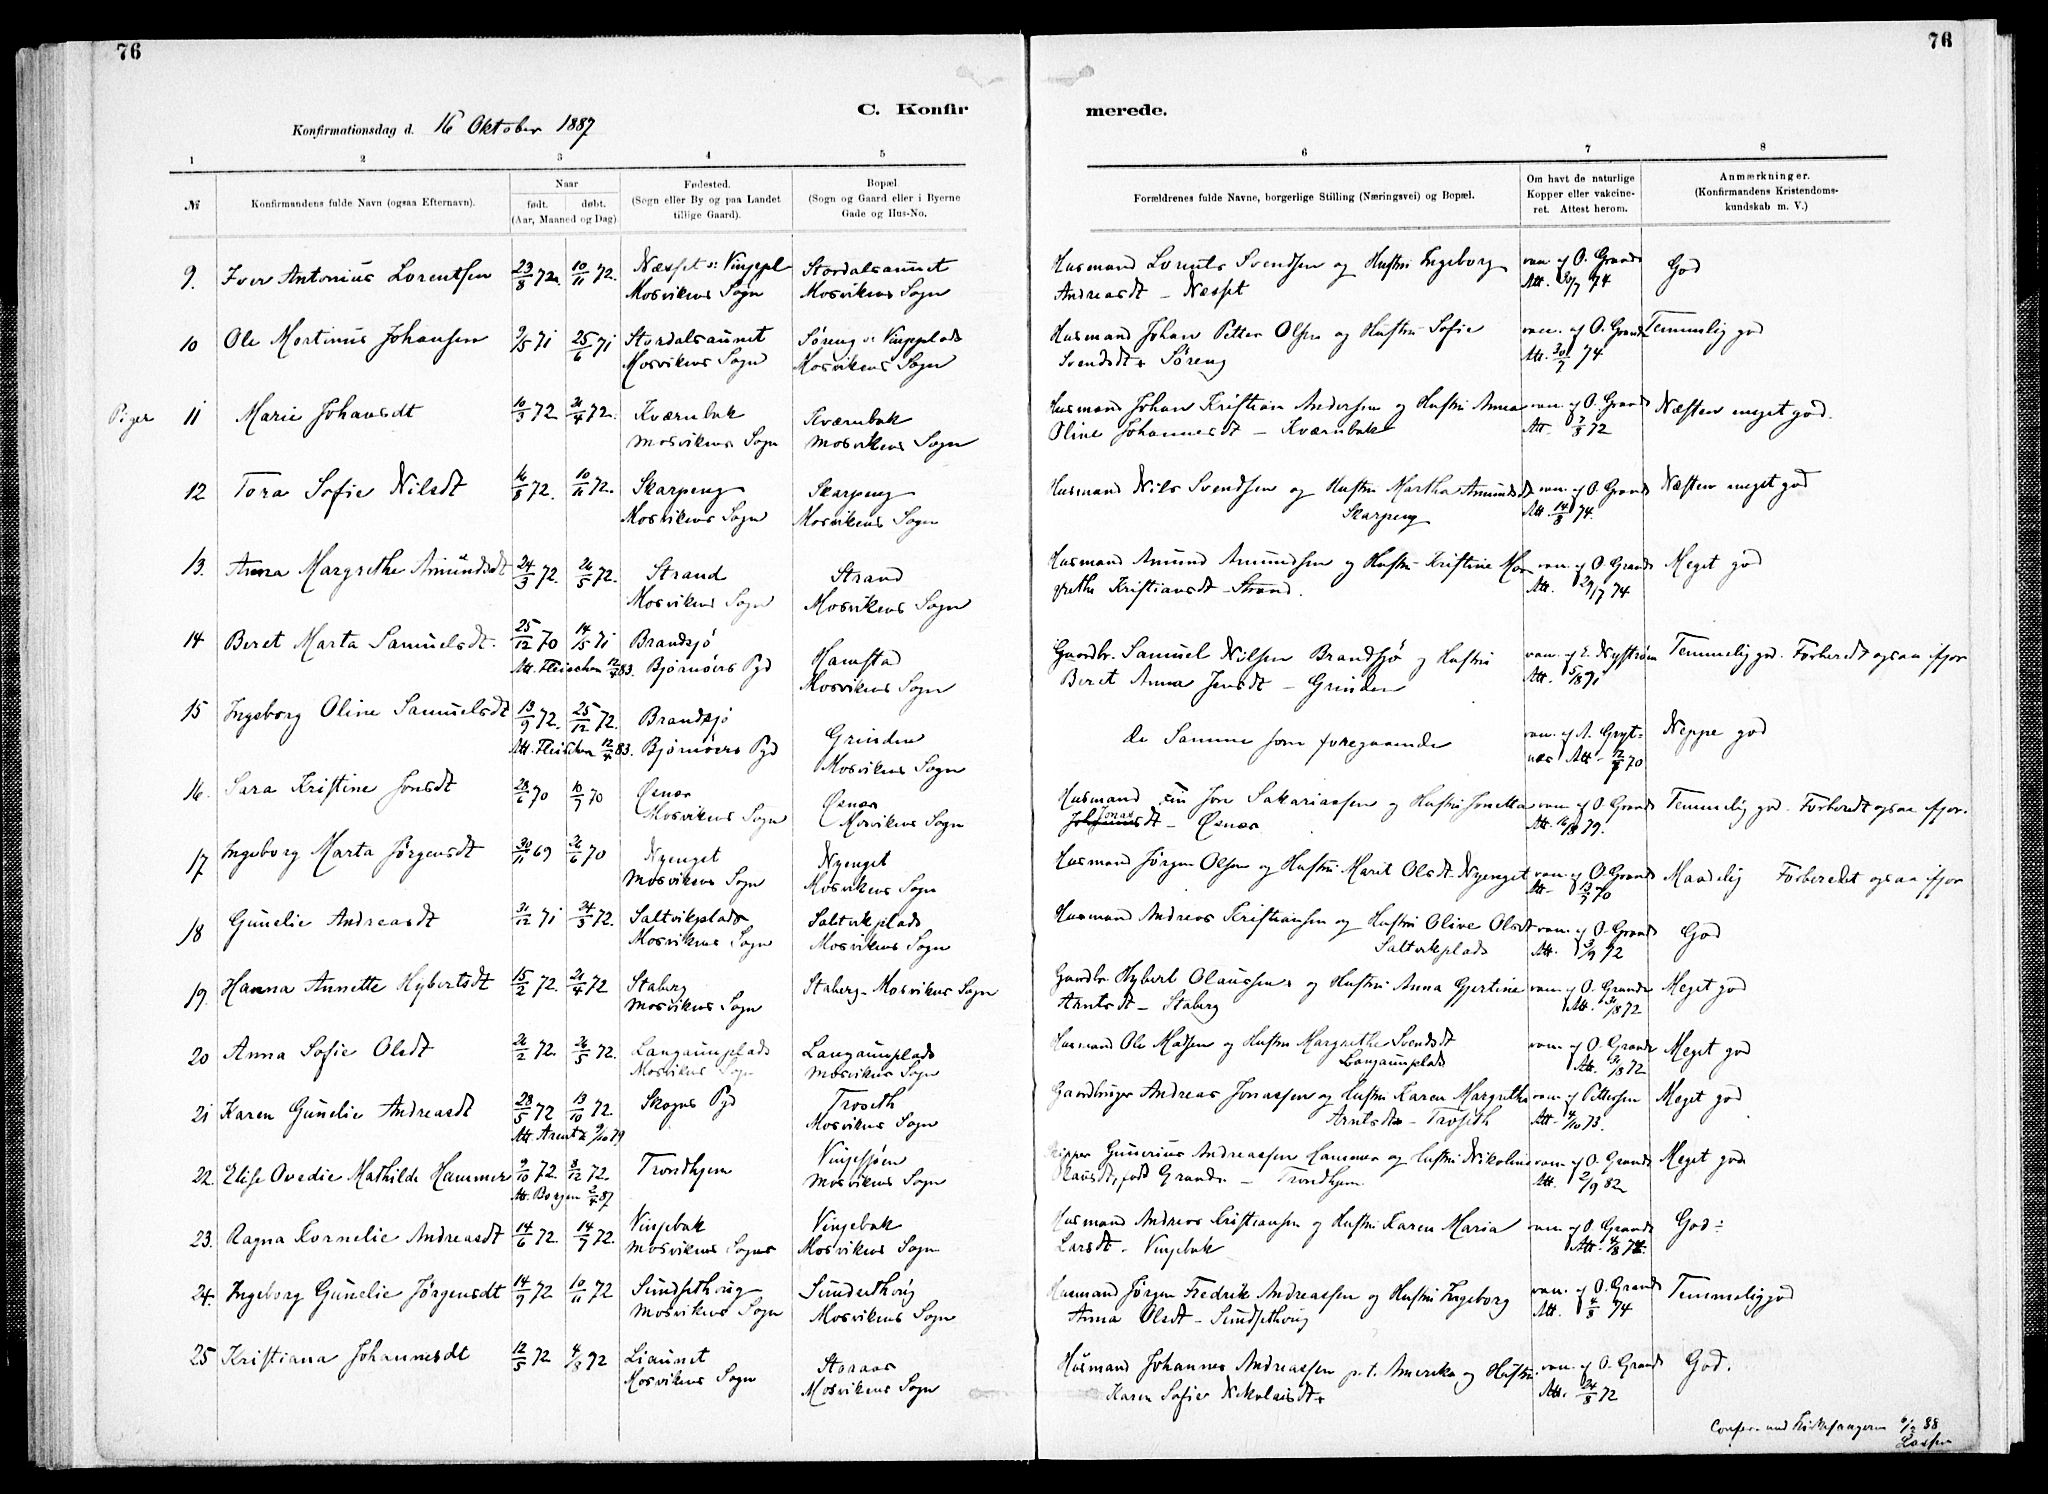 76
76
C. Konfir
merede.
Konfirmationsdag d. 16 Oktober 1887
1 2 3 4 5 6 7 8
№
Konfirmandens fulde Navn (ogsaa Efternavn).
Naar
født. døbt.
(Aar, Maaned og Dag)
Fødested.
(Sogn eller By og paa Landet
tillige Gaard).
Bopæl
(Sogn og Gaard eller i Byerne
Gade og Hus-No.
Forældrenes fulde Navne, borgerlige Stilling (Næringsvei) og Bopæl.
Om havt de naturlige
Kopper eller vakcine-
ret. Attest herom.
Anmærkninger.
(Konfirmandens Kristendoms-
kundskab m. V.)
9. Iver Antonius Lorentsen 23/8 72. 10/11 72. Næsset Stordalsaunet Husmand Lorents Svendsen og Hustru Ingeborg vac. af O. Grande God
Mosvikens Sogn Mosvikens Sogn Andreasdt – Næsset Att. 30/7 74
10 Ole Martinus Johansen 9/5 71 25/6 71 Stordalsaunet Søreng Husmand Johan Petter Olsen og Hustru Sofie vac. af O. Grande Temmelig god
Mosvikens Sogn Mosvikens Sogn Svendsdt Søreng Att. 30/7 74
Piger 11 Marie Johansdt 10/3 72 21/4 72. Kværnbak Kværnbak Husmand Johan Kristian Andersen og Hustru Anna vac. af O. Grande Næsten meget god.
Mosvikens Sogn Mosvikens Sogn Oline Johannesdt – Kværnbak Att. 72
12 Tora Sofie Nilsdt 16/8 72. 10/11 72. Skarpeng Skarpeng Husmand Nils Svendsen og Hustru Martha Amundsdt vac. af O. Grande Næsten meget god
Mosvikens Sogn Mosvikens Sogn Skarpeng Att. 14/8 74.
13. Anna Margrethe Amundsdt 24/3 72. 26/5 72. Strand Strand Husmand Amund Amundsen og Hustru Kristine Mar vac. af O. Grande Meget god
Mosvikens Sogn Mosvikens Sogn grethe Kristiansdt – Strand. Att. 29/7 74
14 Beret Marta Samuelsdt. 25/12 70 14/5 71 Brandsjø Hamstad Gaardbr. Samuel Nilsen Brandsjø og Hustru vac. af E. Nystrøm Temmelig god. Forberedt ogsaa ifjor
Att. Fleischer 12/4 83. Bjørnøers Pgd Mosvikens Sogn Beret Anna Jensdt – Grinden Att. 5/8 71
15 Ingeborg Oline Samuelsdt 13/9 72. 25/12 72. Brandsjø Grinden de Samme som foregaaende vac. af A. Gryt- Neppe god
Att. Fleischer 12/4 83. Bjørnøers Pgd Mosvikens Sogn næs Att. 70
16. Sara Kristine Jonsdt 28/6 70 10/7 70 Øsnes Øsnes Husmand Jon Sakariassen og Hustru Jonetta vac. af O. Grande Temmelig god. Forberedt ogsaa ifjor.
Mosvikens Sogn Mosvikens Sogn Jonasdt – Øsnes Att. 16/8 79.
17 Ingeborg Marta Jørgensdt 30/11 69 26/6 70 Nyenget Nyenget Husmand Jørgen Olsen og Hustru Marit Olsdt Nyenget vac. af O. Grande Maadelig Forberedt ogsaa ifjor
Mosvikens Sogn Mosvikens Sogn Att. 70
18 Gunelie Andreasdt 31/12 71 24/3 72. Saltvikplads Saltvikplads Husmand Andreas Kristiansen og Hustru Oline Olsdt vac. af O. Grande God
Mosvikens Sogn Mosvikens Sogn Saltvikplads Att. 3/9 72
19. Hanna Annette Hybertsdt 15/2 72. 21/4 72 Staberg Staberg – Mosvikens Sogn Gaardbr. Hybert Olaussen og Hustru Anna Gjertine vac. af O. Grande Meget god
Mosvikens Sogn Arntsdt – Staberg Att. 31/8 72
20 Anna Sofie Olsdt 26/2 72. 26/5 72. Langaunplads Langaunplads Husmand Ole Madsen og Hustru Margrethe Svendsdt vac. af O. Grande Meget god
Mosvikens Sogn Mosvikens Sogn Langaunplads Att. 31/8 72
21 Karen Gunelie Andreasdt 28/5 72 13/10 72. Skogns Pgd Troseth Gaardbruger Andreas Jonassen og Hustru Karen Margrethe vac. af Pettersen Meget god
Att. Arentz 9/10 79 Mosvikens Sogn Arntsdt – Troseth Att. 4/10 73.
22. Elise Ovedie Mathilde Hammer 9/10 72. 8/12 72. Trondhjem Vinjesjøen Skipper Gunerius Andreassen Hammer og Hustru Nikoline vac. af O. Grande Meget god
Att. Borgen 2/4 87 Mosvikens Sogn Olausdt, født Grande – Trondhjem Att. 2/9 82
23. Ragna Kornelie Andreasdt 14/6 72. 14/7 72. Vinjebak Vinjebak Husmand Andreas Kristiansen og Hustru Karen Maria vac. af O. Grande God
Mosvikens Sogn Mosvikens Sogn Larsdt. Vinjebak Att. 4/8 74
24. Ingeborg Gunelie Jørgensdt 14/9 72 10/11 72 Sundsethaug Sundsethaug Husmand Jørgen Fredrik Andreassen og Hustru Ingeborg vac. af O. Grande Temmelig god
Mosvikens Sogn Mosvikens Sogn Anna Olsdt – Sundsethaug Att. 4/8 74
25 Kristiana Johannesdt 12/5 72 4/8 72 Liaunet Storaas Husmand Johannes Andreassen p.t. Amerika og Hustru vac. af O. Grande God.
Mosvikens Sogn Mosvikens Sogn Karen Sofie Nikolaisdt Att. 24/8 72
Confer. med Kirkesangeren 88